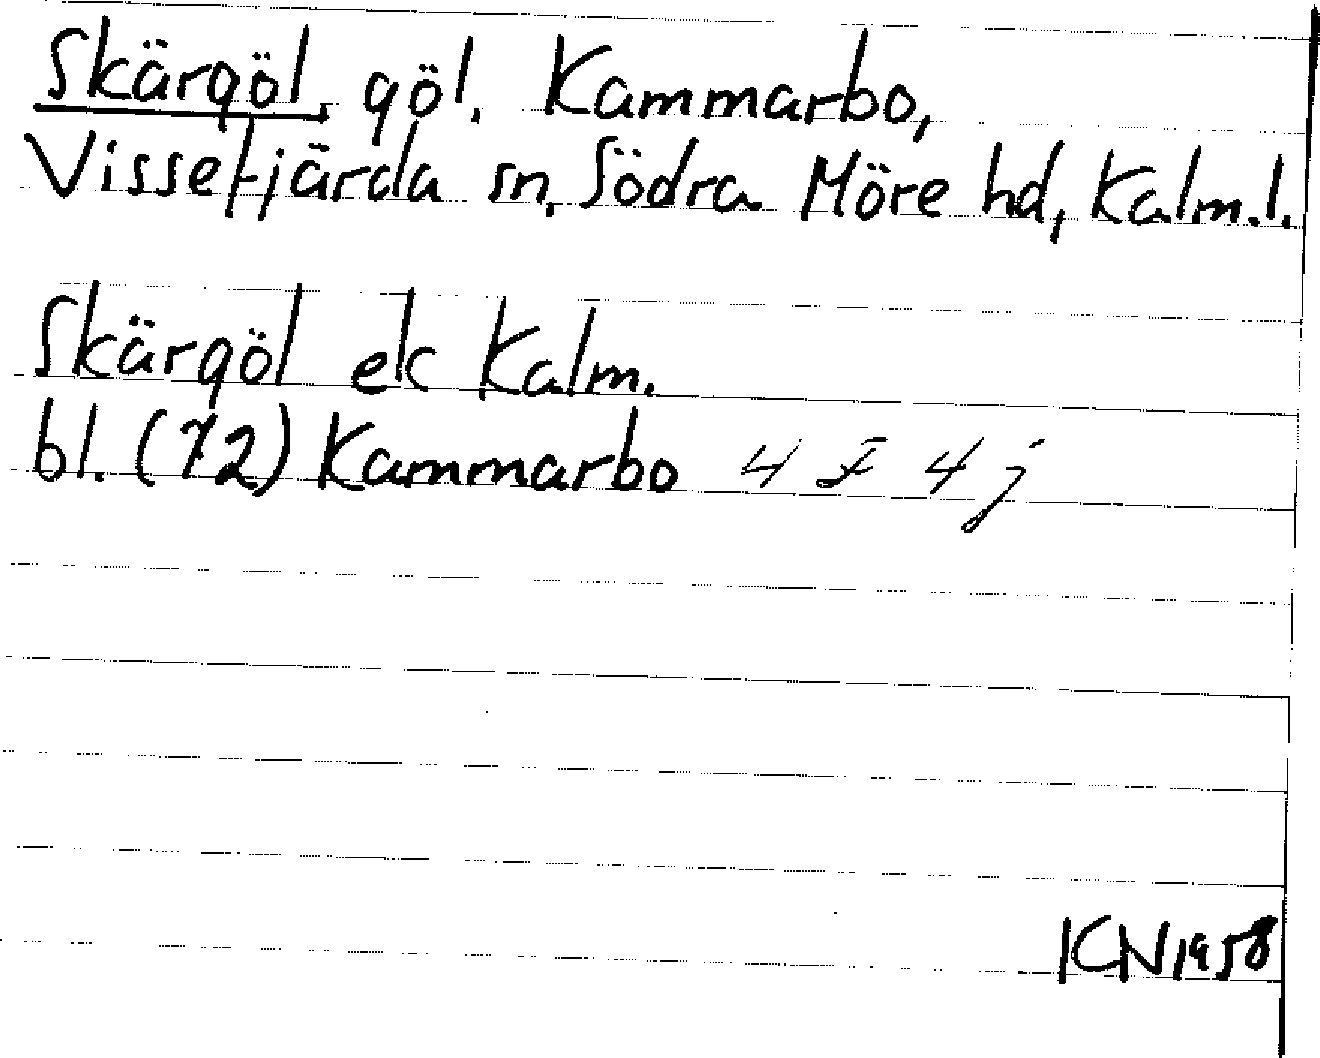 Skärgöl, göl. Kammarbo,
Vissefjärda sn, Södra Möre hd, Kalm.l.
Skärgöl ek Kalm.
bl. (72) Kammarbo 4 F 4 j
KN 1958